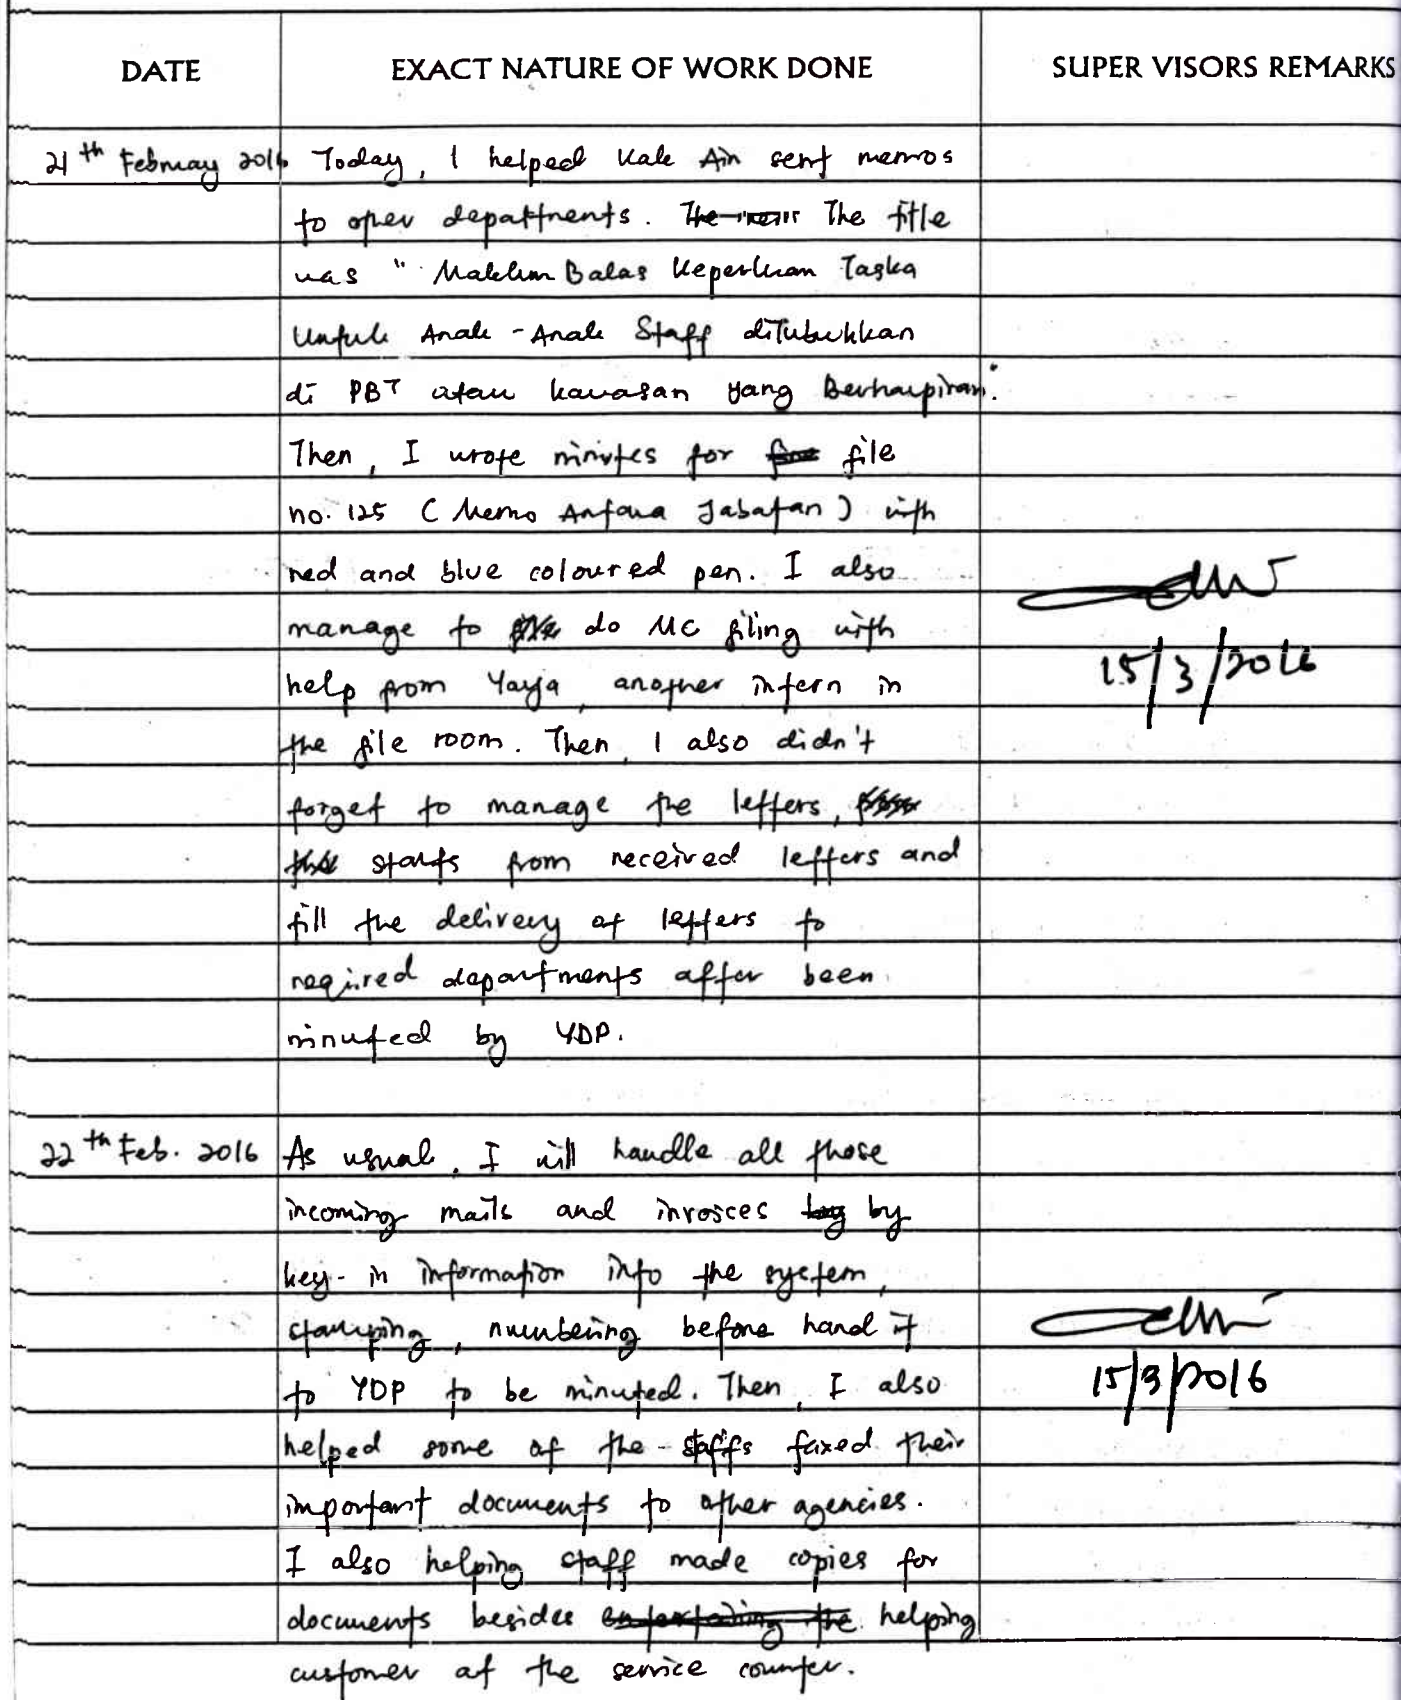 DATE EXACT NATURE OF WORK DONE SUPER VISORS REMARKS
21th February 2016 Today, I helped Kak Ain sent memos
to other departments. The title
was " Maklum Balas Keperluan Taska
Untuk Anak - Anak Staff diTubuhkan
di PBT atau kawasan yang Berhampiran."
Then, I wrote minutes for file
no. 125 ( Memo Antara Jabatan ) with
red and blue coloured pen. I also
manage to do MC filing with
help from Yaya, another intern in
the file room. Then, I also didn't
forget to manage the letters,
starts from received letters and
till the delivery of letters to
required departments after been
minuted by YDP.
15/3/2016
22th Feb. 2016 As usual, I will handle all those
incoming mails and invoices by
key-in information into the system,
stamping, numbering before hand it
to YDP to be minuted. Then, I also
helped some of the staffs faxed their
important documents to other agencies.
I also helping staff made copies for
documents besides entertaining the helping
customer at the service counter.
15/3/2016